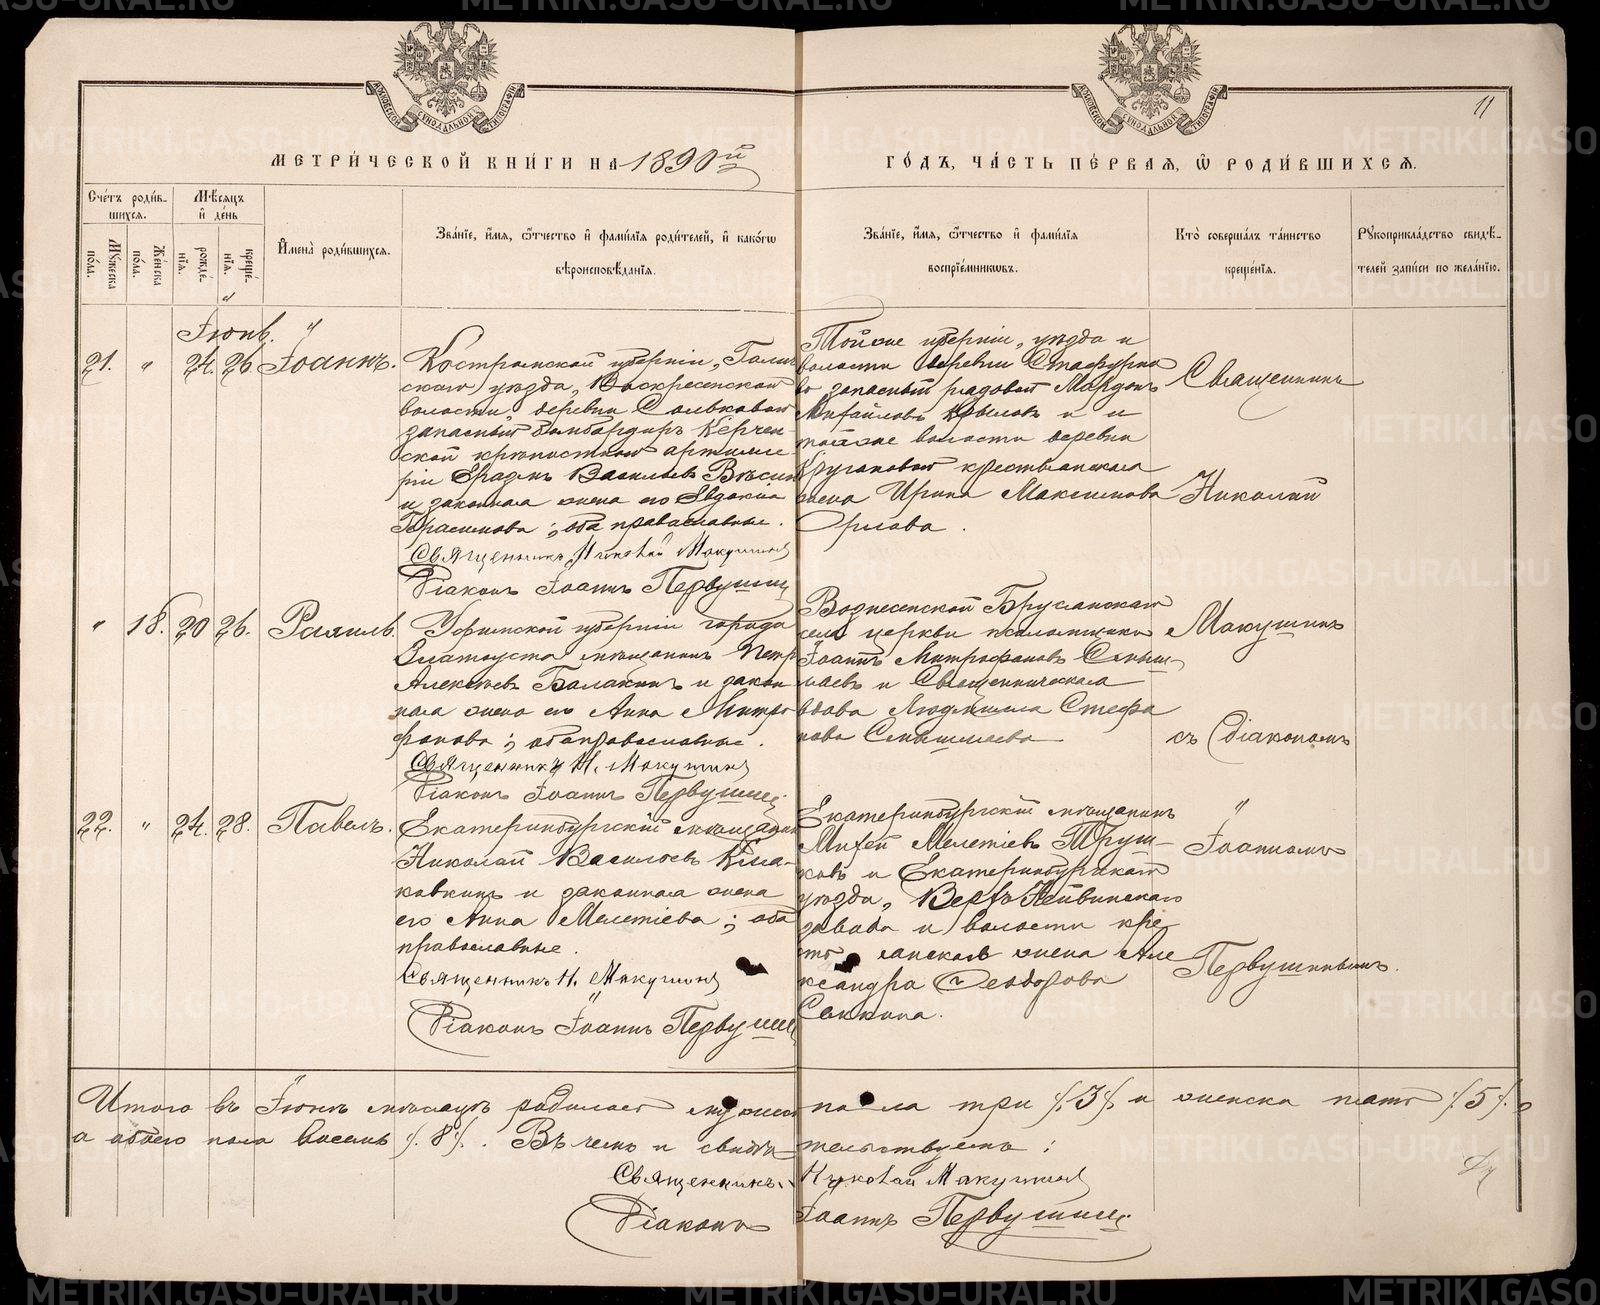 11
МЕТРИ́ЧЕСКОЙ КНИ́ГИ НА 1890й
ГО́ДЪ, ЧА́СТЬ ПЕ́РВАЯ, Ѿ РОДИ́ВШИХСЯ.
Сче́тъ роди́в-
шихся.
Мѣ́сяцъ
и де́нь
Му́жеска
по́ла.
Же́нска
по́ла.
рожде́-
нїя.
креще́-
нїя.
И҆мена̀ роди́вшихся.
Зва́нїе, и҆́мя, ѻ҆́тчество и҆ фами́лїя роди́телей, и҆ како́гѡ
вѣроисповѣ́данїя.
Зва́нїе, и҆́мя, ѻ҆́тчество и҆ фами́лїя
воспрїе́мниковъ.
Кто̀ соверша́лъ та́инство
креще́нїя.
Рꙋкоприкла́дство свидѣ́-
телей за́писи по жела́нїю.
Іюнь.
21. " 24. 26 Іоаннъ.
Костромской губерніи, Галич
скаго уѣзда, Воскресенской
волости деревни Солькова
запасный бомбардиръ Керчен
ской крѣпостной артилле
ріи Еразмъ Васильевъ
и законная жена его Евдокія
Герасимова; оба православные.
Священникъ Николай Макушинъ
Діаконъ Іоаннъ Первушинъ
Той же губерніи, уѣзда и
волости деревни
запасный рядовой
Михайловъ Крыловъ и
той же волости деревни
крестьянская
жена Ирина Максимова
Орлова.
Священникъ
Николай
" 18. 20 26. Рахиль.
Уфимской губерніи города
Златоуста мѣщанинъ Петръ
Алексѣевъ Балакинъ и закон
ная жена его Анна Митро
фанова; оба православные.
Священникъ Н. Макушинъ
Діаконъ Іоаннъ Первушинъ
Вознесенской Брусянской
села церкви псаломщикъ
Іоаннъ Митрофановъ Смыш-
ляевъ и Священническая
вдова Людмила Стефа
нова Смышляева
Макушинъ
съ Діакономъ
22. " 24. 28. Павелъ.
Екатеринбургскій мѣщанинъ
Николай Васильевъ
и законная жена
его Анна Мелетіева; оба
православные.
Священникъ Н. Макушинъ
Діаконъ Іоаннъ Первушинъ
Екатеринбургскій мѣщанинъ
Михей Мелетіевъ Труш-
ковъ и Екатеринбургскаго
уѣзда, Верхъ-Нейвинскаго
завода и волости кре
стьянская жена Але
ксандра Ѳеодорова
Саккина.
Іоанномъ
Первушинымъ.
Итого въ Іюнѣ мѣсяцѣ родилось мужеска пола три /.3./, и женска пять /.5./,
а обоего пола восемь /.8./. Въ чемъ и свидѣтельствуемъ:
Священникъ Николай Макушинъ
Діаконъ Іоаннъ Первушинъ
METRIKI.GASO-URAL.RU